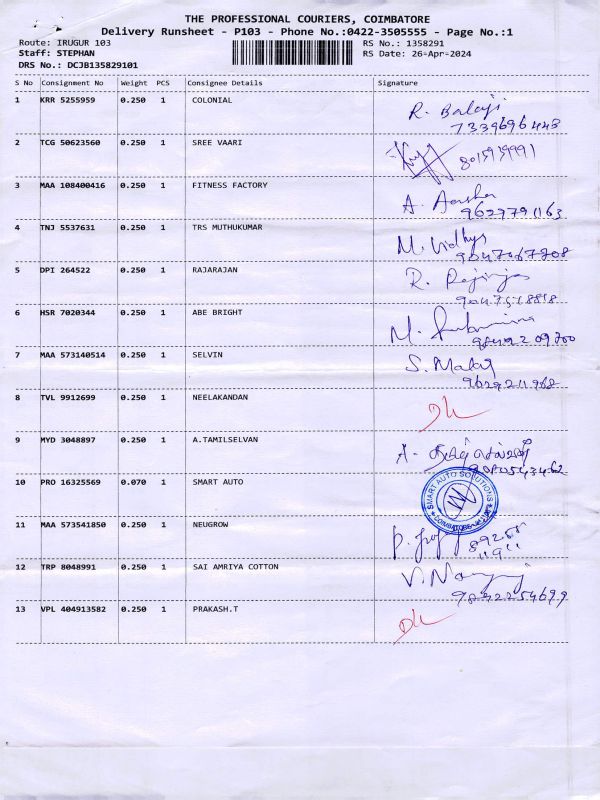 THE PROFESSIONAL COURIERS, COIMBATORE
Delivery Runsheet - P103 - Phone No.:0422-3505555 - Page No.:1
Route: IRUGUR 103 RS No.: 1358291
Staff: STEPHAN RS Date: 26-Apr-2024
DRS No.: DCJB135829101
S No Consignment No Weight PCS Consignee Details Signature
1 KRR 5255959 0.250 1 COLONIAL R. Balaji
7339696443
2 TCG 50623560 0.250 1 SREE VAARI
3 MAA 108400416 0.250 1 FITNESS FACTORY A.
9629791163
4 TNJ 5537631 0.250 1 TRS MUTHUKUMAR M. Vidhya
5 DPI 264522 0.250 1 RAJARAJAN R.
6 HSR 7020344 0.250 1 ABE BRIGHT M.
7 MAA 573140514 0.250 1 SELVIN S.
9629211968
8 TVL 9912699 0.250 1 NEELAKANDAN
9 MYD 3048897 0.250 1 A.TAMILSELVAN A.
10 PRO 16325569 0.070 1 SMART AUTO SMART AUTO SOLUTIONS
11 MAA 573541850 0.250 1 NEUGROW
12 TRP 8048991 0.250 1 SAI AMRIYA COTTON V.
9842254699
13 VPL 404913582 0.250 1 PRAKASH.T